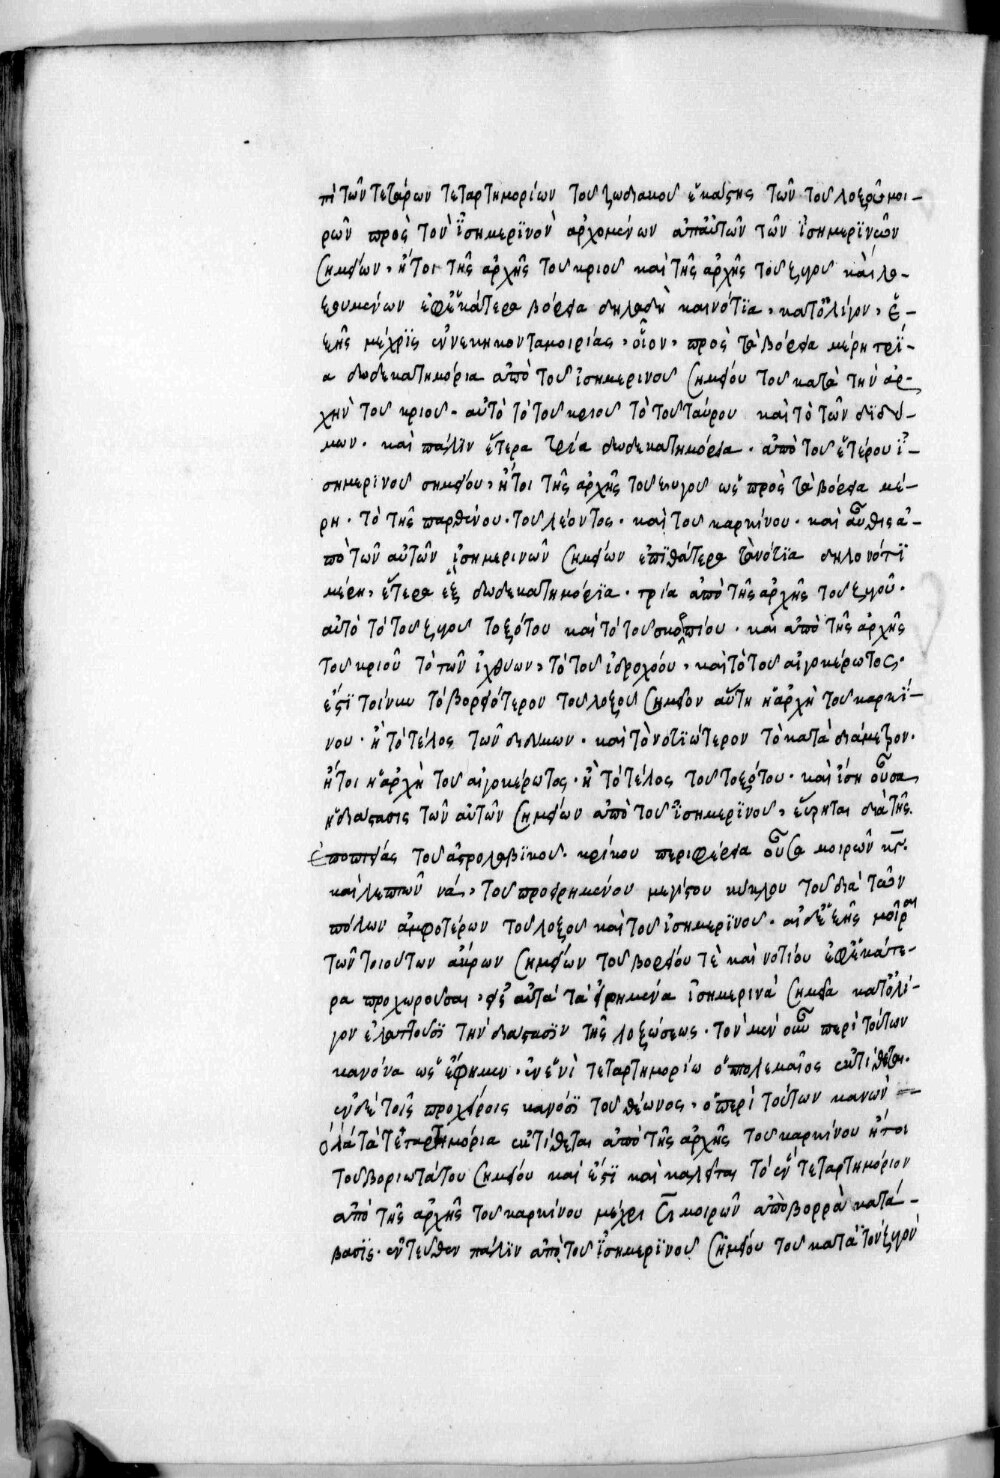 πὶ τῶν τεττάρων τεταρτημορίων τοῦ ζωδιακοῦ ἑκάστης τῶν τοῦ λοξοῦ μοι-
ρῶν πρὸς τὸν ἰσημερϊνὸν ἀρχομένων ἀπ αὐτῶν τῶν ἰσημερϊνῶν
σημείων, ἤτοι τῆς ἀρχῆς τοῦ κριοῦ καὶ τῆς ἀρχῆς τοῦ ζυγοῦ καὶ λο-
ξουμένων ἐφ ἑκάτερα βόρεια δηλαδὴ καὶ νότϊα, κατ ὀλίγον, ἑ-
ξῆς μέχρϊς ἐννενηκονταμοιρίας, οἷον, πρὸς τὰ βόρεια μέρη τρί-
α δωδεκατημόρια ἀπὸ τοῦ ἰσημερινοῦ σημείου τοῦ κατὰ τὴν ἀρ-
χὴν τοῦ κριοῦ - αὐτὸ τὸ τοῦ κριοῦ τὸ τοῦ ταύρου καὶ τὸ τῶν διδύ-
μων. καὶ πάλϊν ἕτερα τρία δωδεκατημόρια. ἀπὸ τοῦ ἑτέρου ἰ-
σημερϊνοῦ σημείου, ἤτοι τῆς ἀρχῆς τοῦ ζυγοῦ ὡς πρὸς τὰ βόρεια μέ-
ρη. τὸ τῆς παρθένου. τοῦ λέοντος. καὶ τοῦ καρκίνου. καὶ αὖθις ἀ-
πὸ τῶν αὐτῶν ἰσημερινῶν σημείων ἐπὶ θάτερα τὰ νότϊα δηλονότϊ
μέρη, ἕτερα ἓξ δωδεκατημόρϊα. τρία ἀπὸ τῆς ἀρχῆς τοῦ ζυγοῦ.
αὐτὸ τὸ τοῦ ζυγοῦ τοξότου καὶ τὸ τοῦ σκορπίου. καὶ ἀπὸ τῆς ἀρχῆς
τοῦ κριοῦ τὸ τῶν ἰχθύων, τὸ τοῦ ὑδροχόου, καὶ τὸ τοῦ αἰγοκέρωτος.
ἔστϊ τοίνυν τὸ βορειότερον τοῦ λοξοῦ σημεῖον αὕτη ἡ ἀρχὴ τοῦ καρκί-
νου. ἢ τὸ τέλος τῶν διδύμων. καὶ τὸ νοτϊώτερον τὸ κατὰ διάμετρον.
ἤτοι ἡ ἀρχὴ τοῦ αἰγοκέρωτος. ἢ τὸ τέλος τοῦ τοξότου. καὶ ἴση οὖσα
ἡ διάστασις τῶν αὐτῶν σημείων ἀπὸ τοῦ ἰσημερϊνοῦ, εὕρηται διὰ τῆς
ἐποπτείας τοῦ ἀστρολαβϊκοῦ. κρίκου περιφέρεια οὖσα μοιρῶν κγ.
καὶ λεπτῶν να, τοῦ προειρημένου μεγίστου κύκλου τοῦ διὰ τῶν
πόλων ἀμφοτέρων τοῦ λοξοῦ καὶ τοῦ ἰσημερϊνοῦ. αἱ δ ἑξῆς μοῖραι
τῶν τοιούτων ἄκρων σημείων τοῦ βορείου τὲ καὶ νοτίου ἐφ ἑκάτε-
ρα προχωροῦσαι, ἐπ αὐτὰ τὰ εἰρημένα ἰσημερινὰ σημεῖα κατ ὀλί-
γον ἐλαττοῦσϊ τὴν διάστασϊν τῆς λοξώσεως. τὸν μὲν οὖν περὶ τούτων
κανόνα ὡς ἔφημεν. ἐν ἑνὶ τεταρτημορίω ὁ πτολεμαῖος ἐκτίθεται.
ἐν δὲ τοῖς προχείροις κανόσϊ τοῦ θέωνος, ὁ περὶ τούτων κανὼν
ὅλα τὰ τεταρτημόρια ἐκτίθεται ἀπὸ τῆς ἀρχῆς τοῦ καρκίνου ἤτοι
τοῦ βοριωτάτου σημείου καὶ ἔστϊ καὶ καλεῖται τὸ ἓν τεταρτημόριον
ἀπὸ τῆς ἀρχῆς τοῦ καρκίνου μέχρι μοιρῶν ἀπὸ βορρᾶ κατά-
βασϊς. ἐντεῦθεν πάλϊν ἀπὸ τοῦ ἰσημερϊνοῦ σημείου τοῦ κατὰ τὸν ζυγὸν